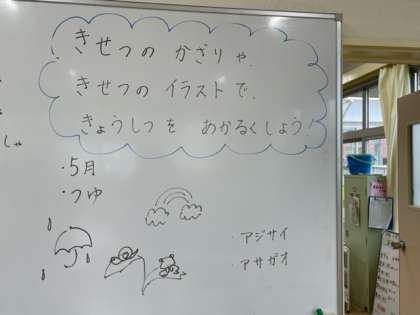 きせつの かざりや、
きせつの イラストで、
きょうしつを あかるくしよう!
・5月
・つゆ
・アジサイ
・アサガオ
しゃ